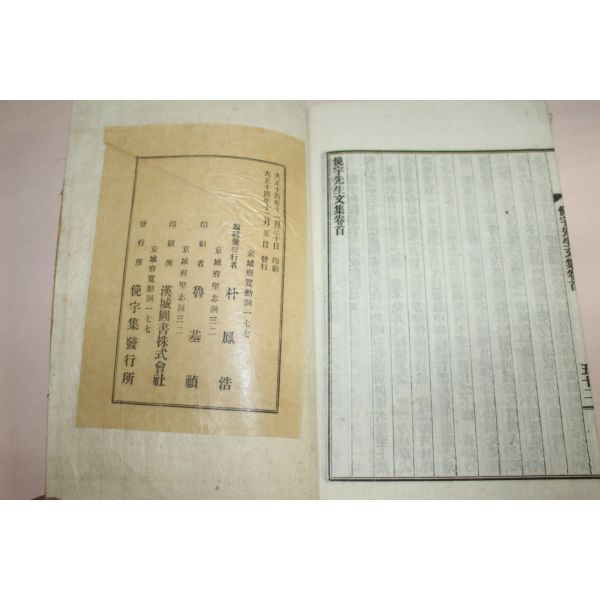 俛宇先生文集卷首
俛宇先生文集卷首
五十二
大正十四年十一月三十日 印刷
大正十四年十二月五日 發行
京城府寬勳洞一七七
編輯兼發行者 朴鳳浩
京城府堅志洞三二
印刷者 魯基禎
京城府堅志洞三二
印刷所 漢城圖書株式會社
京城府寬勳洞一七七
發行所 俛宇集發行所